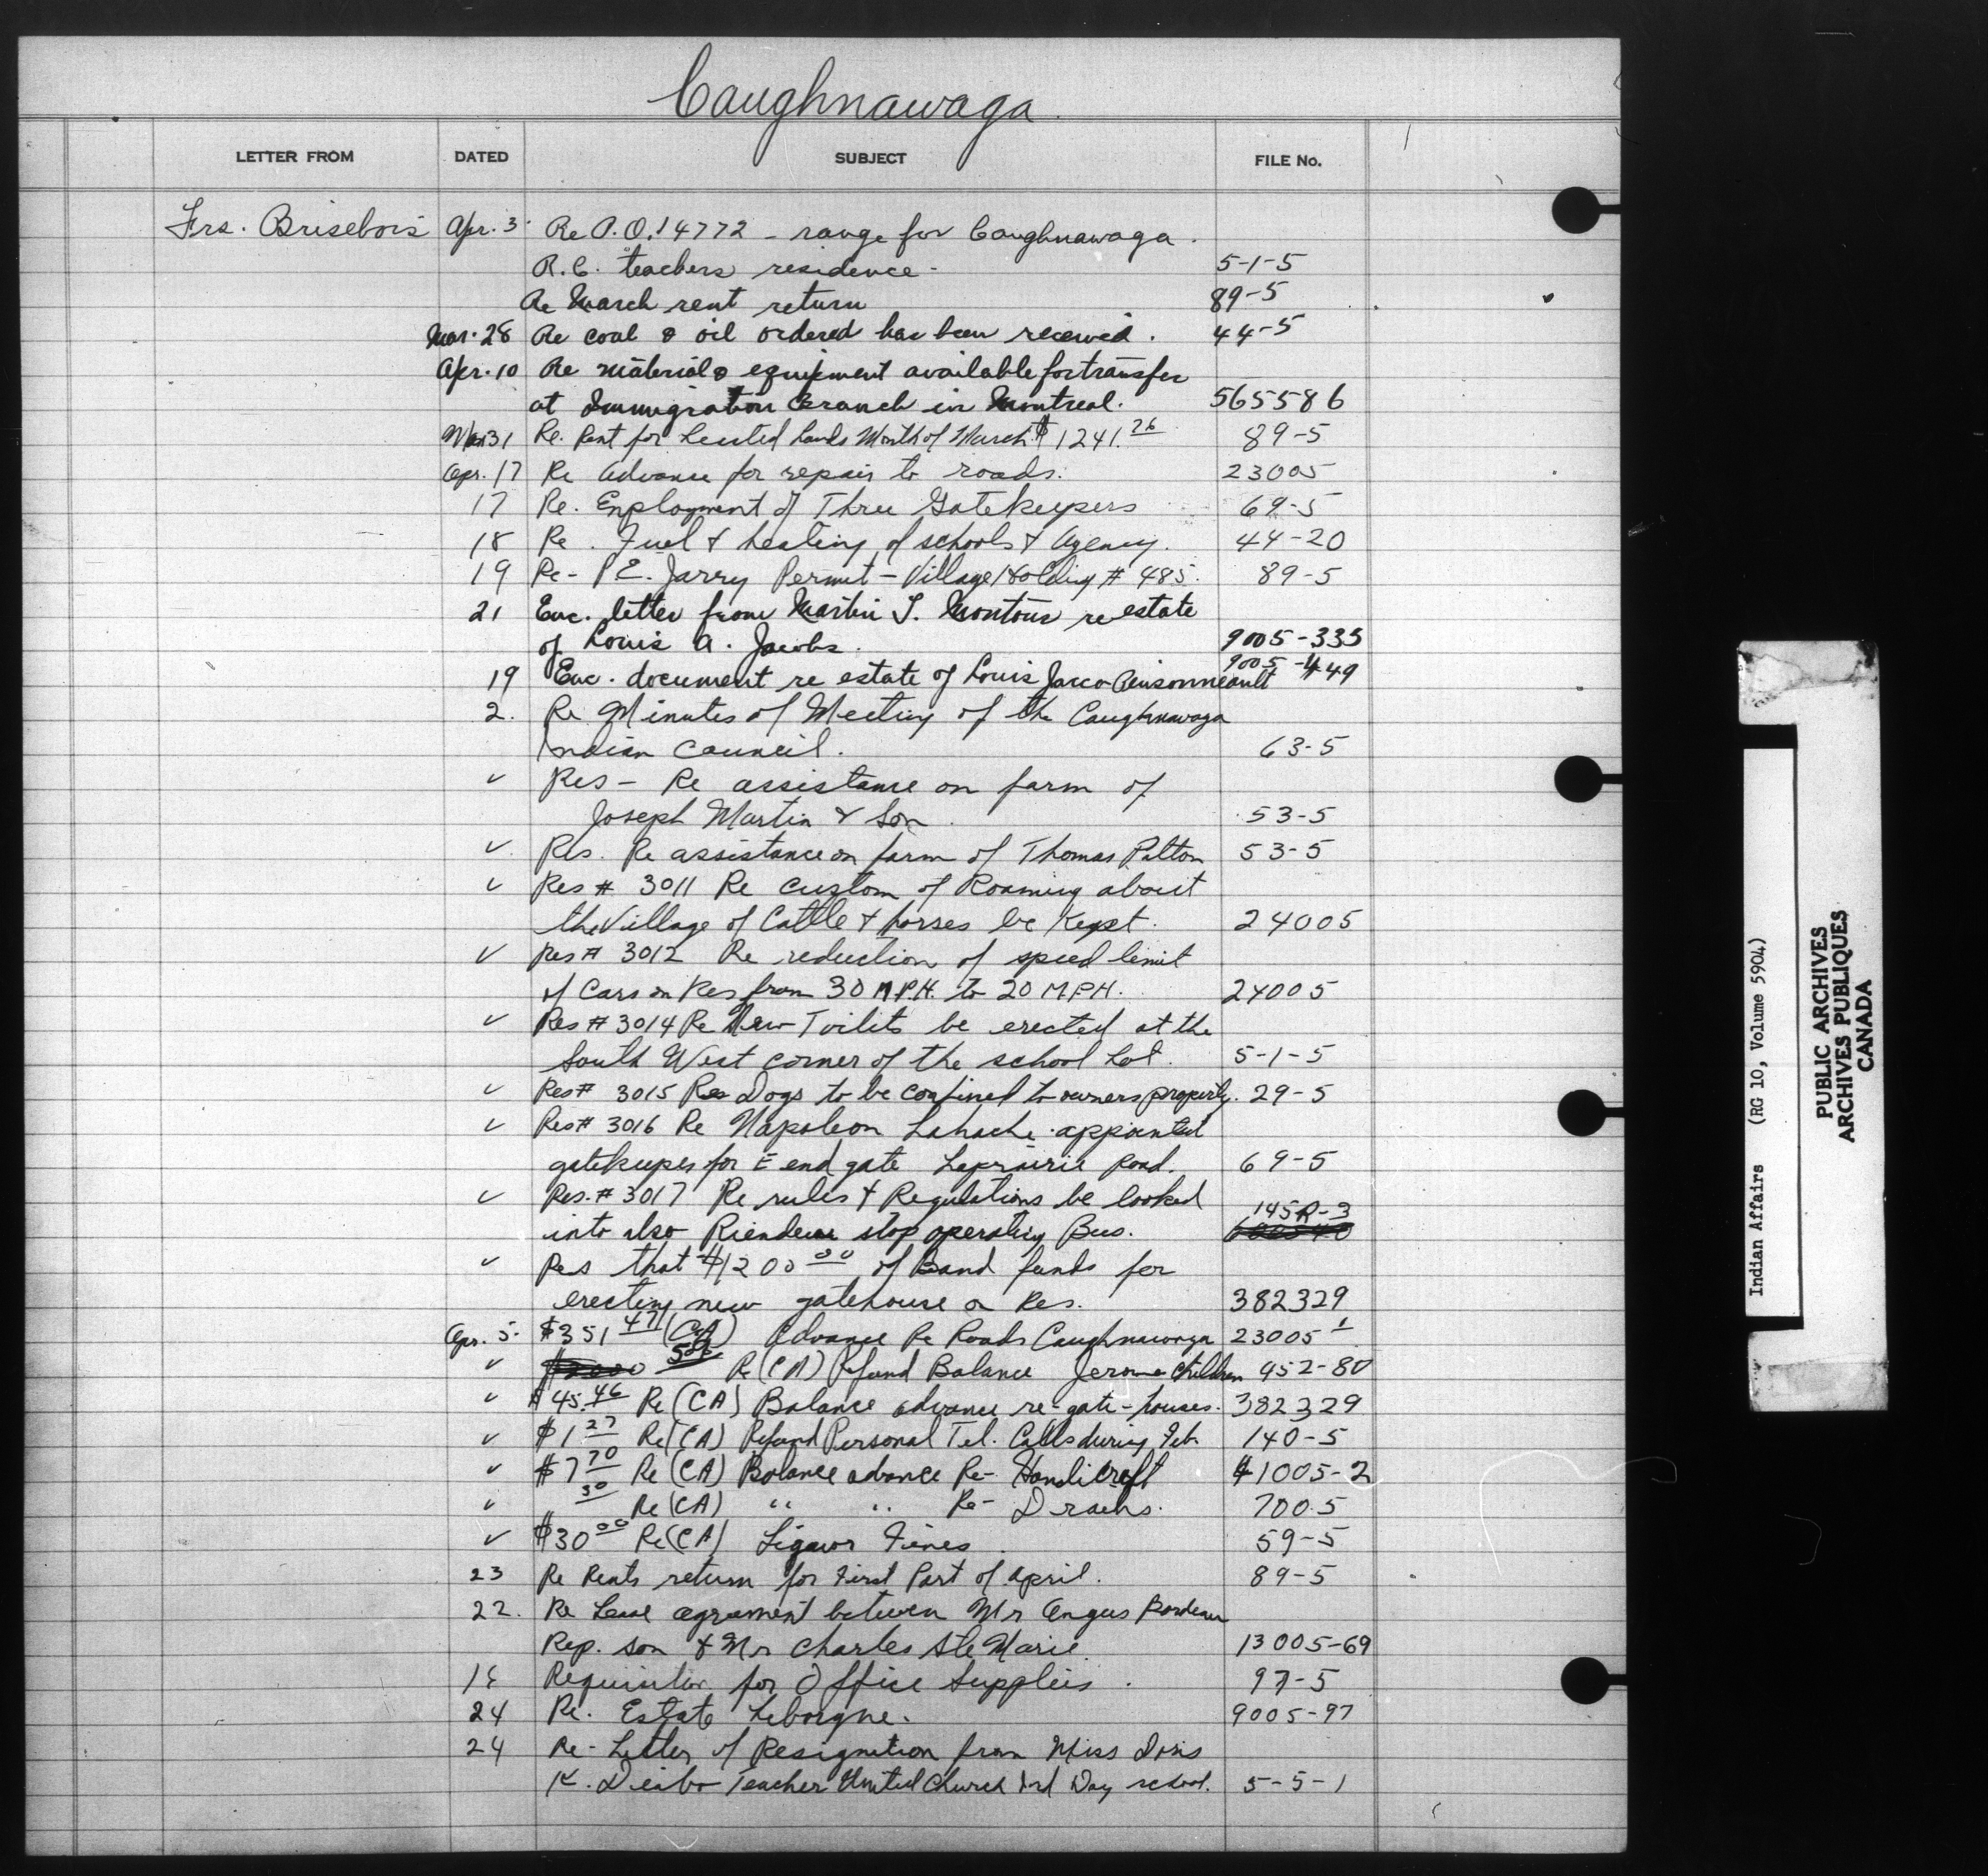 Caughnawaga.
LETTER FROM DATED SUBJECT FILE No.
Frs. Brisebois Apr. 3 Re P.O. 14772 - range for Caughnawaga.
R.C. teachers residence - 5-1-5
Re March rent return 89-5
Mar. 28 Re coal & oil ordered has been received. 44-5
Apr. 10 Re material & equipment available for transfer
at Immigration Branch in Montreal. 565586
Mar 31 Re. Rent for Leased Lands Month of March $1241.26 89-5
Apr. 17 Re Advance for repair to roads. 23005
17 Re. Employment of Three Gatekeepers 69-5
18 Re. Fuel & heating of schools & Agency. 44-20
19 Re- P.E. Jarry Permit - Village Holding # 485. 89-5
21 Enc. letter from Martin J. Montour re estate
of Louis A. Jacobs. 9005-335
19 Enc. document re estate of Louis Jacco Pinsonneault 9005-449
2. Re Minutes of Meeting of the Caughnawaga
Indian Council. 63-5
✓ Res - Re assistance on farm of
Joseph Martin & Son. 53-5
✓ Res. Re assistance on farm of Thomas Patton 53-5
✓ Res # 3011 Re custom of Roaming about
the Village of Cattle & horses be Kept. 24005
✓ Res # 3012 Re reduction of speed limit
of Cars on Res from 30 M.P.H. to 20 M.P.H. 24005
✓ Res # 3014 Re New Toilits be erected at the
South West corner of the school Lot. 5-1-5
✓ Res # 3015 Re Dogs to be confined to owners property. 29-5
✓ Res # 3016 Re Napoleon Lahache appointed
gatekeeper for E end gate Laprairie Road. 69-5
✓ Res. # 3017 Re rules & Regulations be looked
into also Riendeau stop operating Bus. 145R-3
✓ Res that $1200.00 of Band funds for
erecting new gatehouse on Res. 382329
Apr. 5. $351.47 (CA) Advance Re Roads Caughnawaga 23005
✓ Re (CA) Refund Balance Jerome Children 952-80
✓ $45.46 Re (CA) Balance advance re-gate-houses. 382329
✓ $1.27 Re (CA) Refund Personal Tel. Calls during Feb. 140-5
✓ $7.70 Re (CA) Balance advance Re- Handicraft 41005-2
✓ .30 Re (CA) " " Re- Drains. 7005
✓ $30.00 Re (CA) Liquor Fines. 59-5
23 Re Rents return for First Part of April. 89-5
22. Re Lease agreement between Mr Angus Bordeau
Rep. son & Mr Charles Ste Marie. 13005-69
Requisition for Office Supplies. 97-5
24 Re. Estate Leborgne. 9005-97
24 Re- Letter of Resignation from Miss Doris
K. Teacher United Church Ind Day school. 5-5-1
Indian Affairs (RG 10, Volume 5904)
PUBLIC ARCHIVES
ARCHIVES PUBLIQUES
CANADA